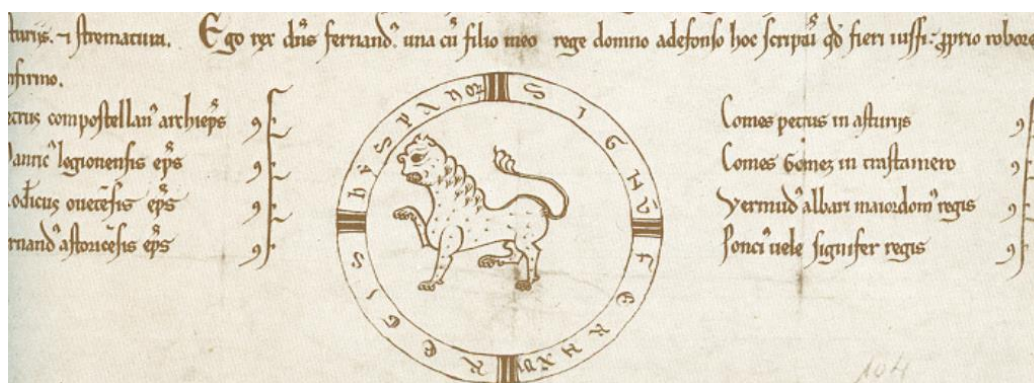 turijs. ⁊ strematura. Ego rex dn̄s fernand᷒ una cū filio meo rege domno adefonso hoc scriptū qd̄ fieri iussi ꝓprio robore
nfirmo.
etrus compostellan᷒ archiep̄s ꝯf
legionensis ep̄s ꝯf
odicus ouetēsis ep̄s ꝯf
ernand᷒ astoricēsis ep̄s ꝯf
SIGNŪ FERNANDI REGIS HYSPANOR
Comes petrus in asturijs ꝯ
Comes Gomez in trastamero ꝯ
Vermud᷒ albari maiordom᷒ regis ꝯ
Ponci᷒ uele signifer regis ꝯ
104